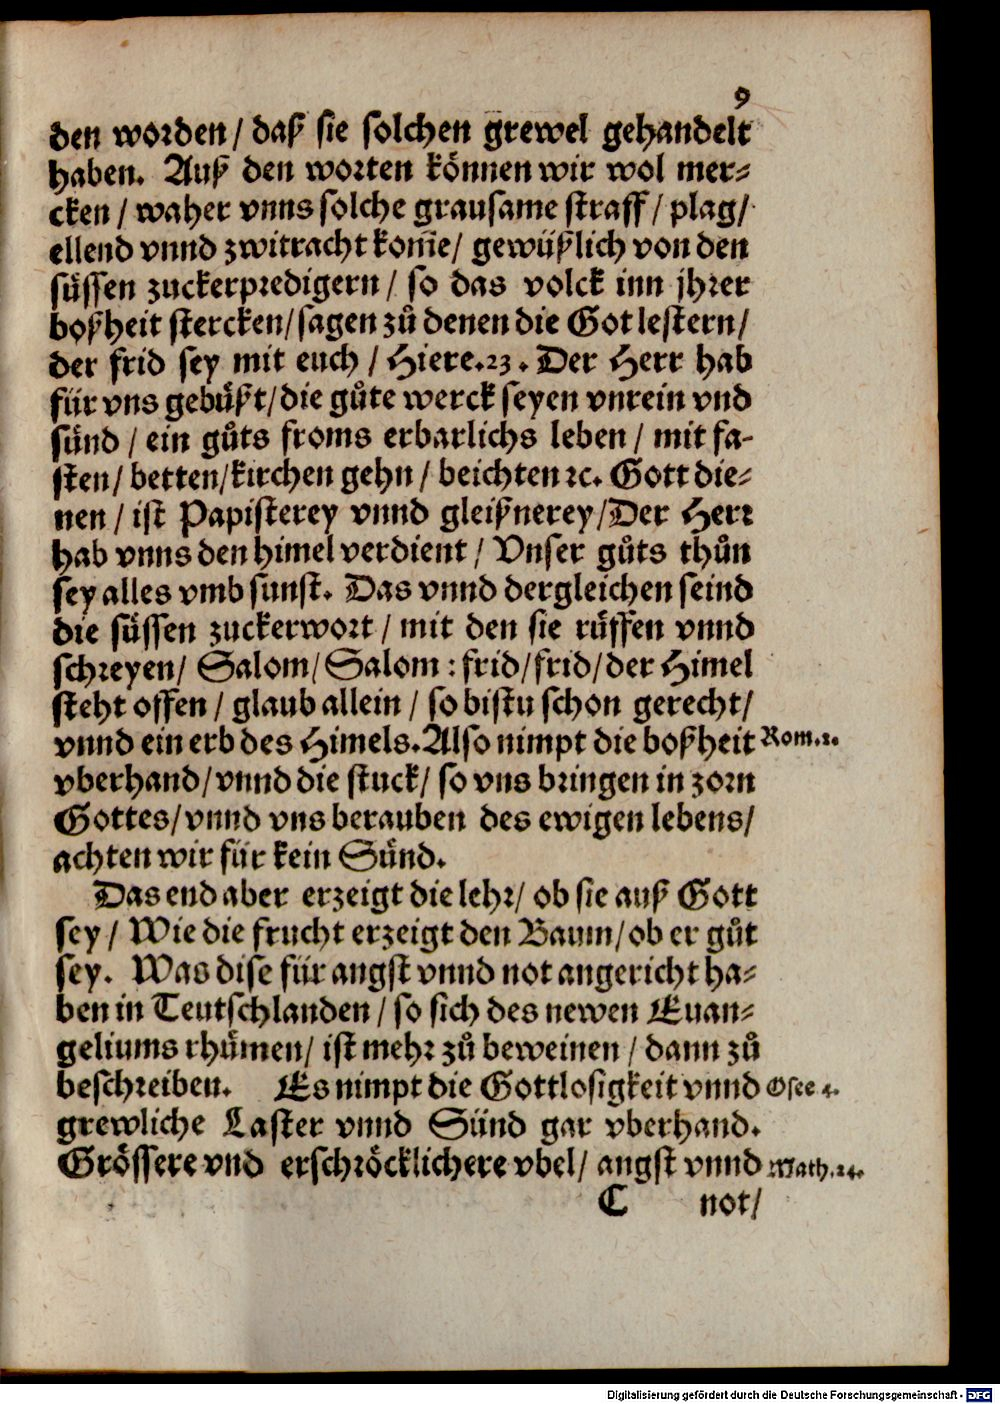 9
den worden / daß sie solchen grewel gehandelt
haben. Auß den worten können wir wol mer⸗
cken / waher vnns solche grausame straff / plag /
ellend vnnd zwitracht kom̄e / gewüßlich von den
süssen zuckerpredigern / so das volck inn jhrer
boßheit stercken / sagen zů denen die Got lestern /
der frid sey mit euch / Hiere. 23. Der Herr hab
für vns gebüßt / die gůte werck seyen vnrein vnd
sünd / ein gůts froms erbarlichs leben / mit fa-
sten / betten / kirchen gehn / beichten ꝛc. Gott die⸗
nen / ist Papisterey vnnd gleißnerey / Der Herr
hab vnns den himel verdient / Vnser gůts thůn
sey alles vmb sunst. Das vnnd dergleichen seind
die süssen zuckerwort / mit den sie rüffen vnnd
schreyen / Salom / Salom : frid / frid / der Himel
steht offen / glaub allein / so bistu schon gerecht /
vnnd ein erb des Himels. Also nimpt die boßheit Rom. 2.
vberhand / vnnd die stuck / so vns bringen in zorn
Gottes / vnnd vns berauben des ewigen lebens /
achten wir für kein Sünd.
Das end aber erzeigt die lehr / ob sie auß Gott
sey / Wie die frucht erzeigt den Baum / ob er gůt
sey. Was dise für angst vnnd not angericht ha⸗
ben in Teutschlanden / so sich des newen Euan⸗
geliums rhümen / ist mehr zů beweinen / dann zů
beschreiben. Es nimpt die Gottlosigkeit vnnd Osee 4.
grewliche Laster vnnd Sünd gar vberhand.
Grössere vnd erschröcklichere vbel / angst vnnd Math. 24.
C not /
Digitalisierung gefördert durch die Deutsche Forschungsgemeinschaft - DFG